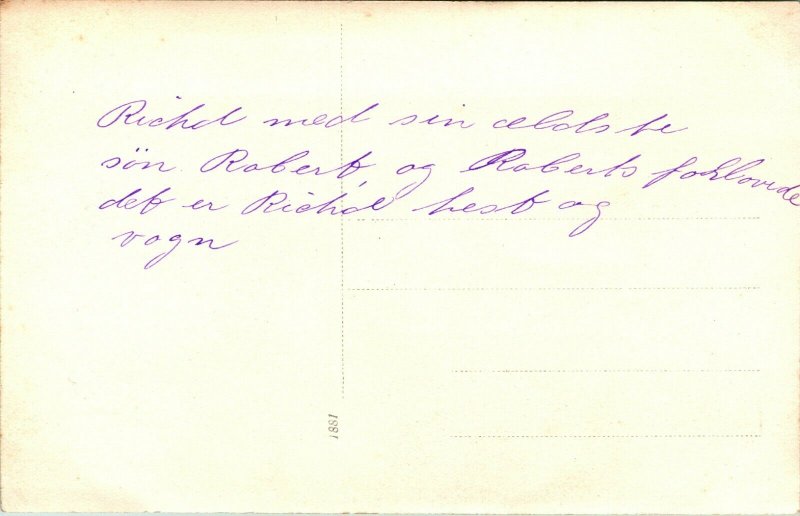 Richd med sin ældste
søn Robert, og Roberts forlovede
det er Richd hest og
vogn
1881